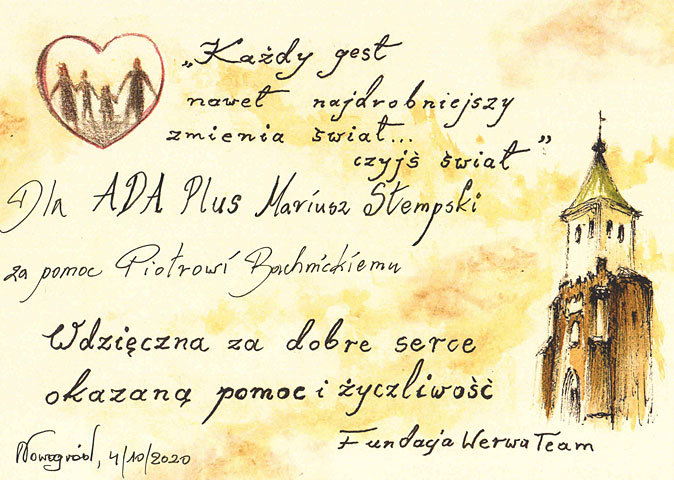 „Każdy gest
nawet najdrobniejszy
zmienia świat...
czyjś świat”
Dla ADA Plus Mariusz Stempski
za pomoc Piotrowi Bachnickiemu
Wdzięczna za dobre serce
okazaną pomoc i życzliwość
Fundacja Werwa Team
Nowogród, 4/10/2020